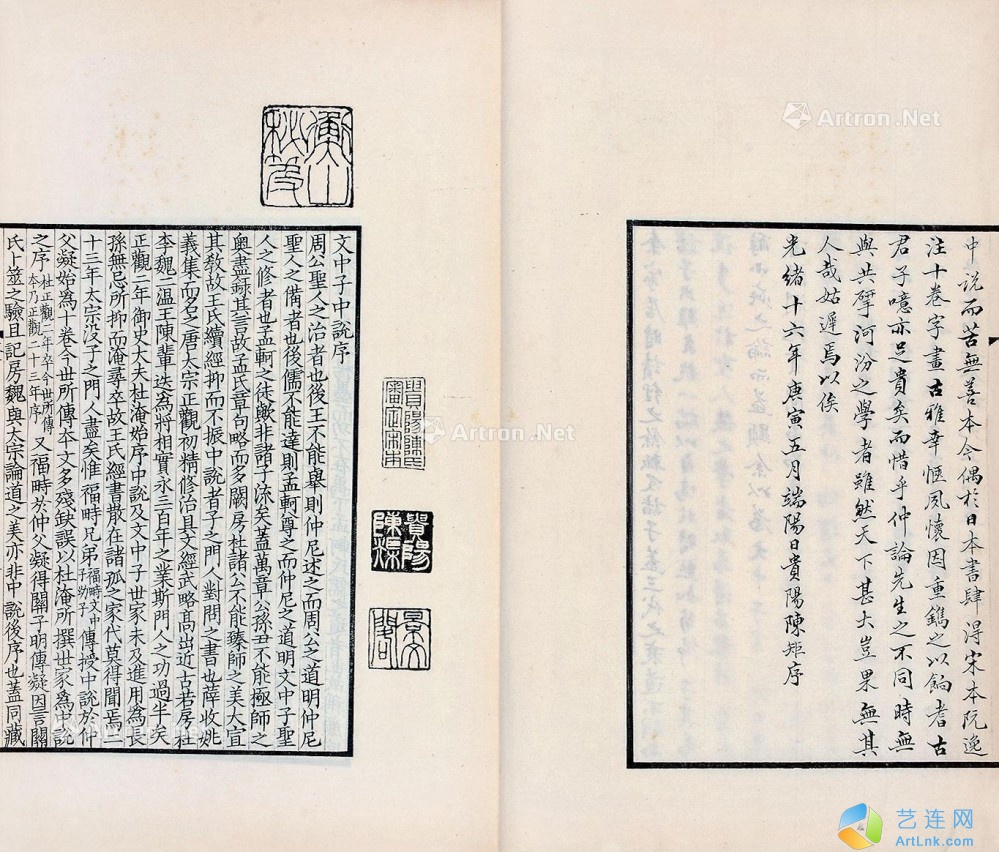 中說而苦無善本今偶於日本書肆得宋本阮逸
注十卷字畫古雅幸愜夙懷因重鐫之以餉耆古
君子噫亦足貴矣而惜乎仲論先生之不同時無
與共學河汾之學者雖然天下甚大豈果無其
人哉姑遲焉以俟
光緒十六年庚寅五月端陽日貴陽陳矩序
文中子中說序
周公聖人之治者也後王不能舉則仲尼述之而周公之道明仲尼
聖人之備者也後儒不能達則孟軻尊之而仲尼之道明文中子聖
人之修者也孟軻之徒歟非諸子流矣蓋萬章公孫丑不能極師之
奧盡錄其言故孟氏章句略而多闕房杜諸公不能臻師之美大宣
其教故王氏續經抑而不振中說者子之門人對問之書也薛收姚
義集而名之唐太宗正觀初精修治具文經武略高出近古若房杜
李魏二溫王陳輩迭為將相實永三百年之業斯門人之功過半矣
正觀二年御史大夫杜淹始序中說及文中子世家未及進用為長
孫無忌所抑而淹尋卒故王氏經書散在諸孤之家代莫得聞焉二
十三年太宗沒子之門人盡矣惟福畤兄弟福畤文中子幼子傳授中說於仲
父凝始為十卷今世所傳本文多殘缺誤以杜淹所撰世家為中說
之序杜正觀二年卒今世所傳本乃正觀二十三年序又福畤於仲父凝得關子明傳凝因言關
氏卜筮之驗且記房魏與太宗論道之美亦非中說後序也蓋同藏
貴陽陳氏
審定善本
貴陽
陳㵆
Artron.Net
Artron.Net
艺连网
ArtLnk.com